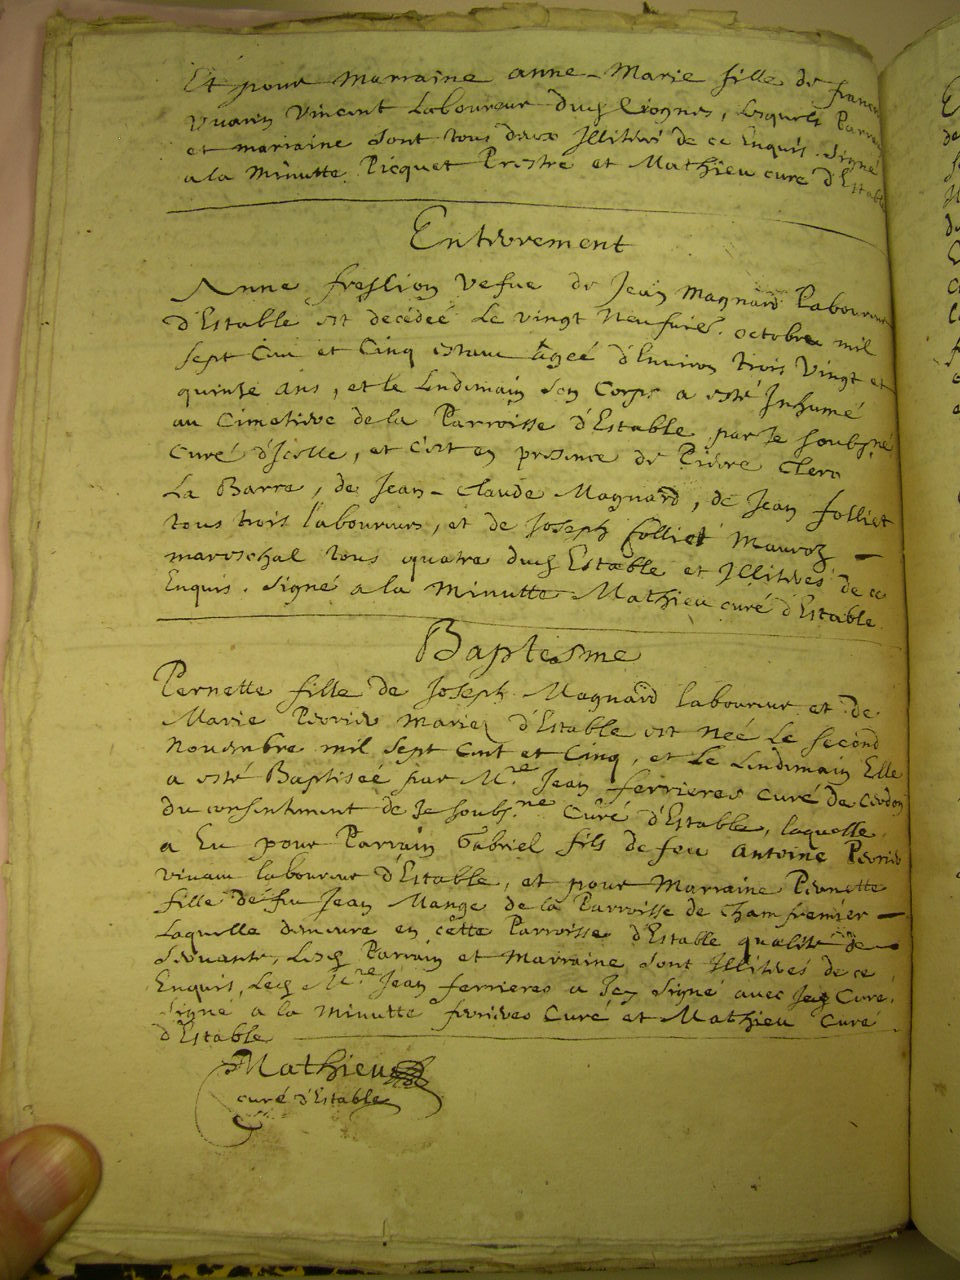 Et pour marraine anne-Marie fille de francois
vivant Laboureur dud , lesquels Parrain
et marraine sont tous deux Illitéres de ce Enquis. Signé
a la Minutte Picquet Prestre et Mathieu curé d'Estable
Enterrement
Anne vefue de Jean Magnard Laboureur
d'Estable est decédeé Le vingt Neufuie octobre mil
sept Cen et Cinq estant âgeé d'Enuiron trois Vingt et
quinze ans, et le Lendemain son Corps a esté Inhumé
au Cimetiere de la Parroisse d'Estable par Je soubsné
Curé d', et c'est en presence de Pierre Clero
La Barre, de Jean-Claude Magnard, de Jean folliet
tous trois laboureurs, et de Joseph folliet Mauroz —
mareschal tous quatre dud Estable et Illitéres de ce
Enquis. Signé a la Minutte Mathieu curé d'Estable
Baptesme
Pernette fille de Joseph Magnard laboureur et de
Marie mariez d'Estable est neé Le second
Nouembre mil sept cent et Cinq, et Le Lendemain Elle
a esté Baptiseé par Mre Jean ferrieres curé de Cordon
du consentement de Je soubsné Curé d'Estable, laquelle
a Eu pour Parrain Gabriel fils de feu Antoine
viuant laboureur d'Estable, et pour Marraine Pernette
fille de feu Jean Mange de la Parroisse de —
Laquelle demeure en cette Parroisse d'Estable qualité de
seruante, Lesq Parrain et Marraine sont Illitéres de ce
Enquis, Led Mre Jean ferrieres a Icy signé avec Je Curé.
Signé a la Minutte ferrieres Curé et Mathieu Curé
d'Estable
Mathieu
curé d'Estable